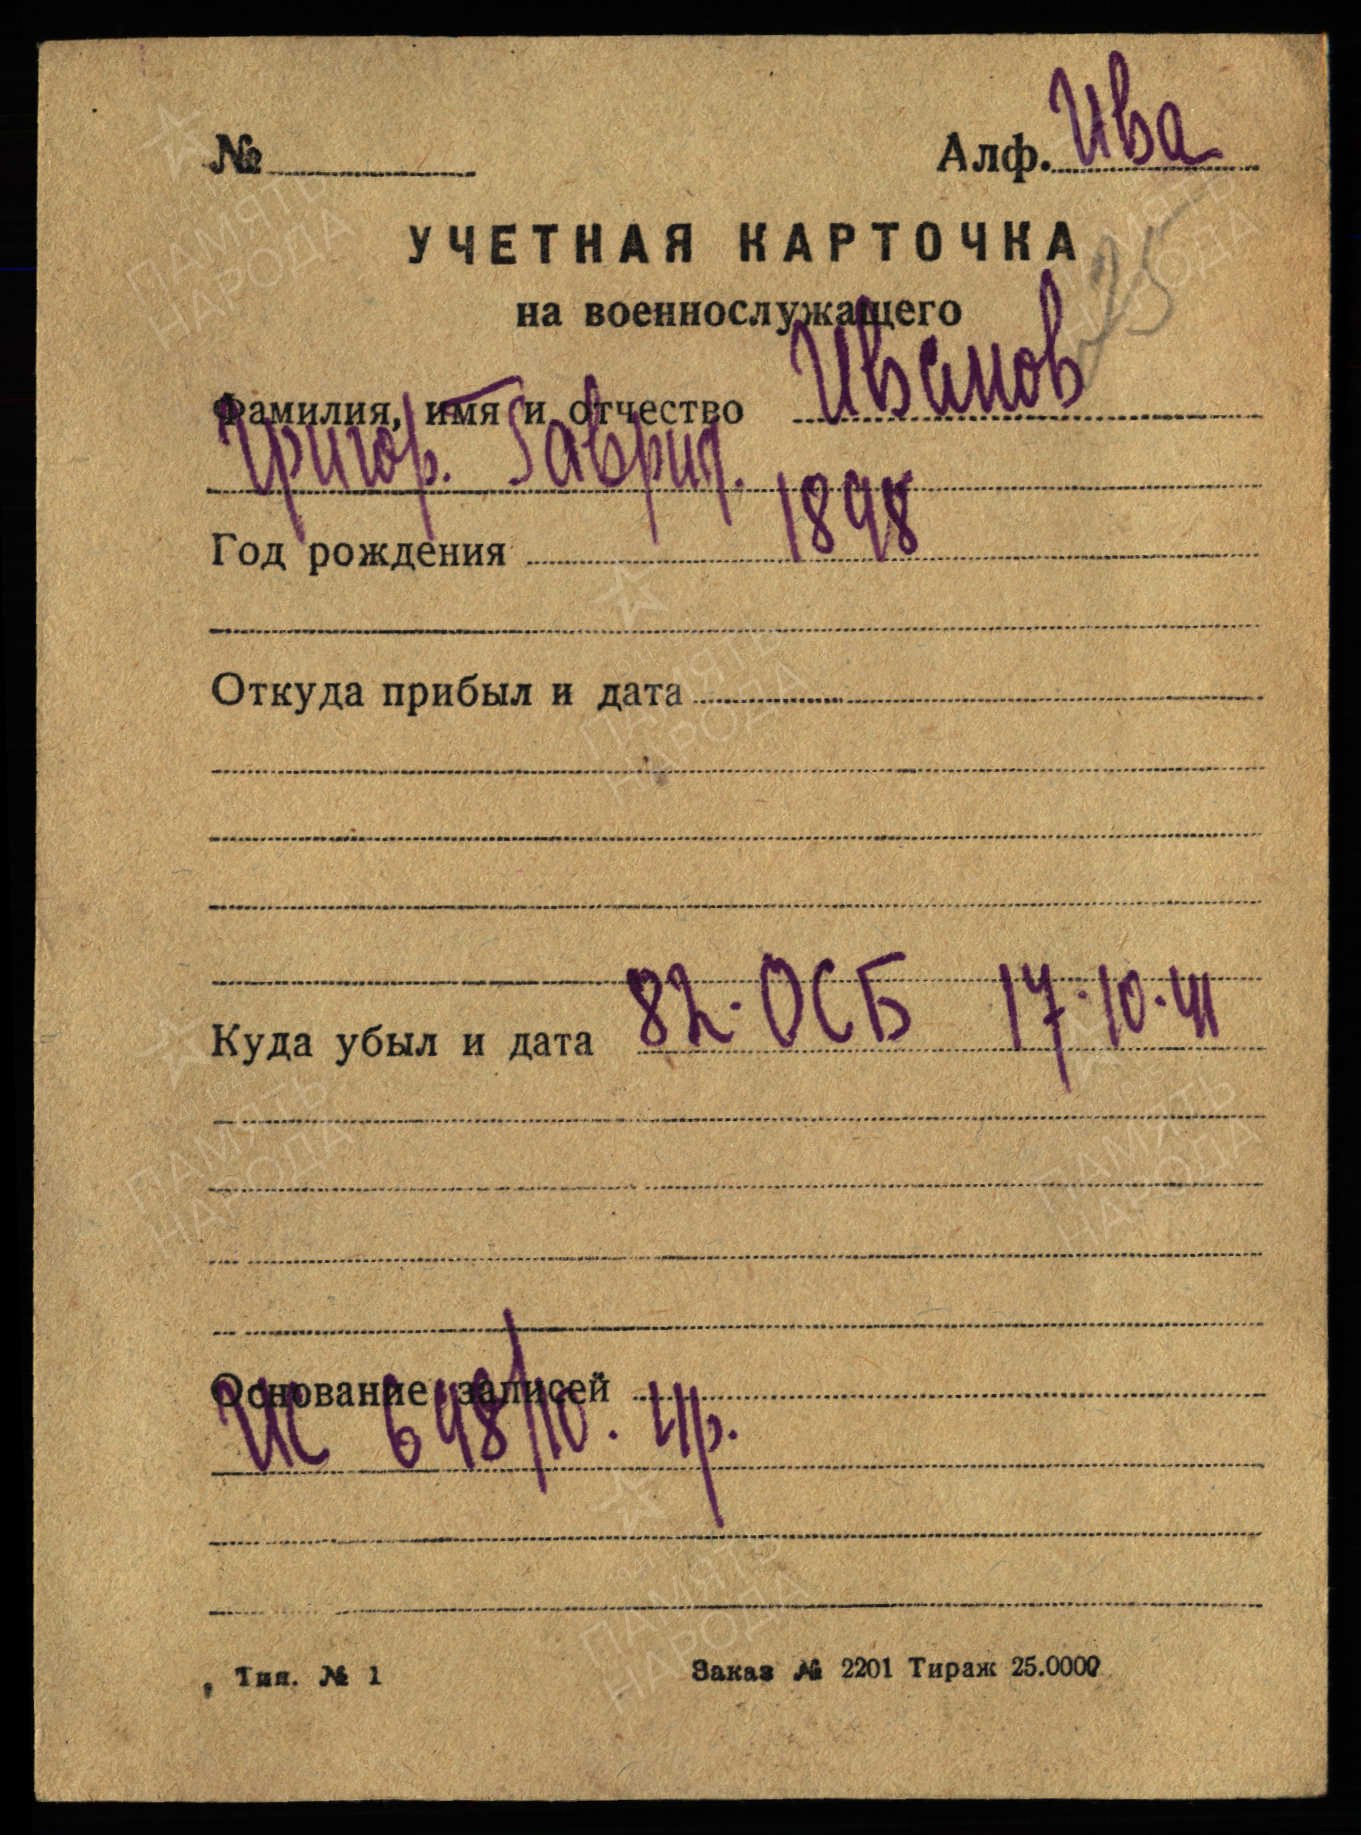 № Алф. Ива
УЧЕТНАЯ КАРТОЧКА
25
на военнослужащего
Фамилия, имя и отчество Иванов
Григор. Гаврил.
Год рождения 1898
Откуда прибыл и дата
Куда убыл и дата 82. ОСБ 17.10.41
Основание записей
ИС 648/10.
Тип. № 1 Заказ № 2201 Тираж 25.0000
ПАМЯТЬ
НАРОДА
ПАМЯТЬ
НАРОДА
ПАМЯТЬ
НАРОДА
ПАМЯТЬ
НАРОДА
ПАМЯТЬ
НАРОДА
ПАМЯТЬ
НАРОДА